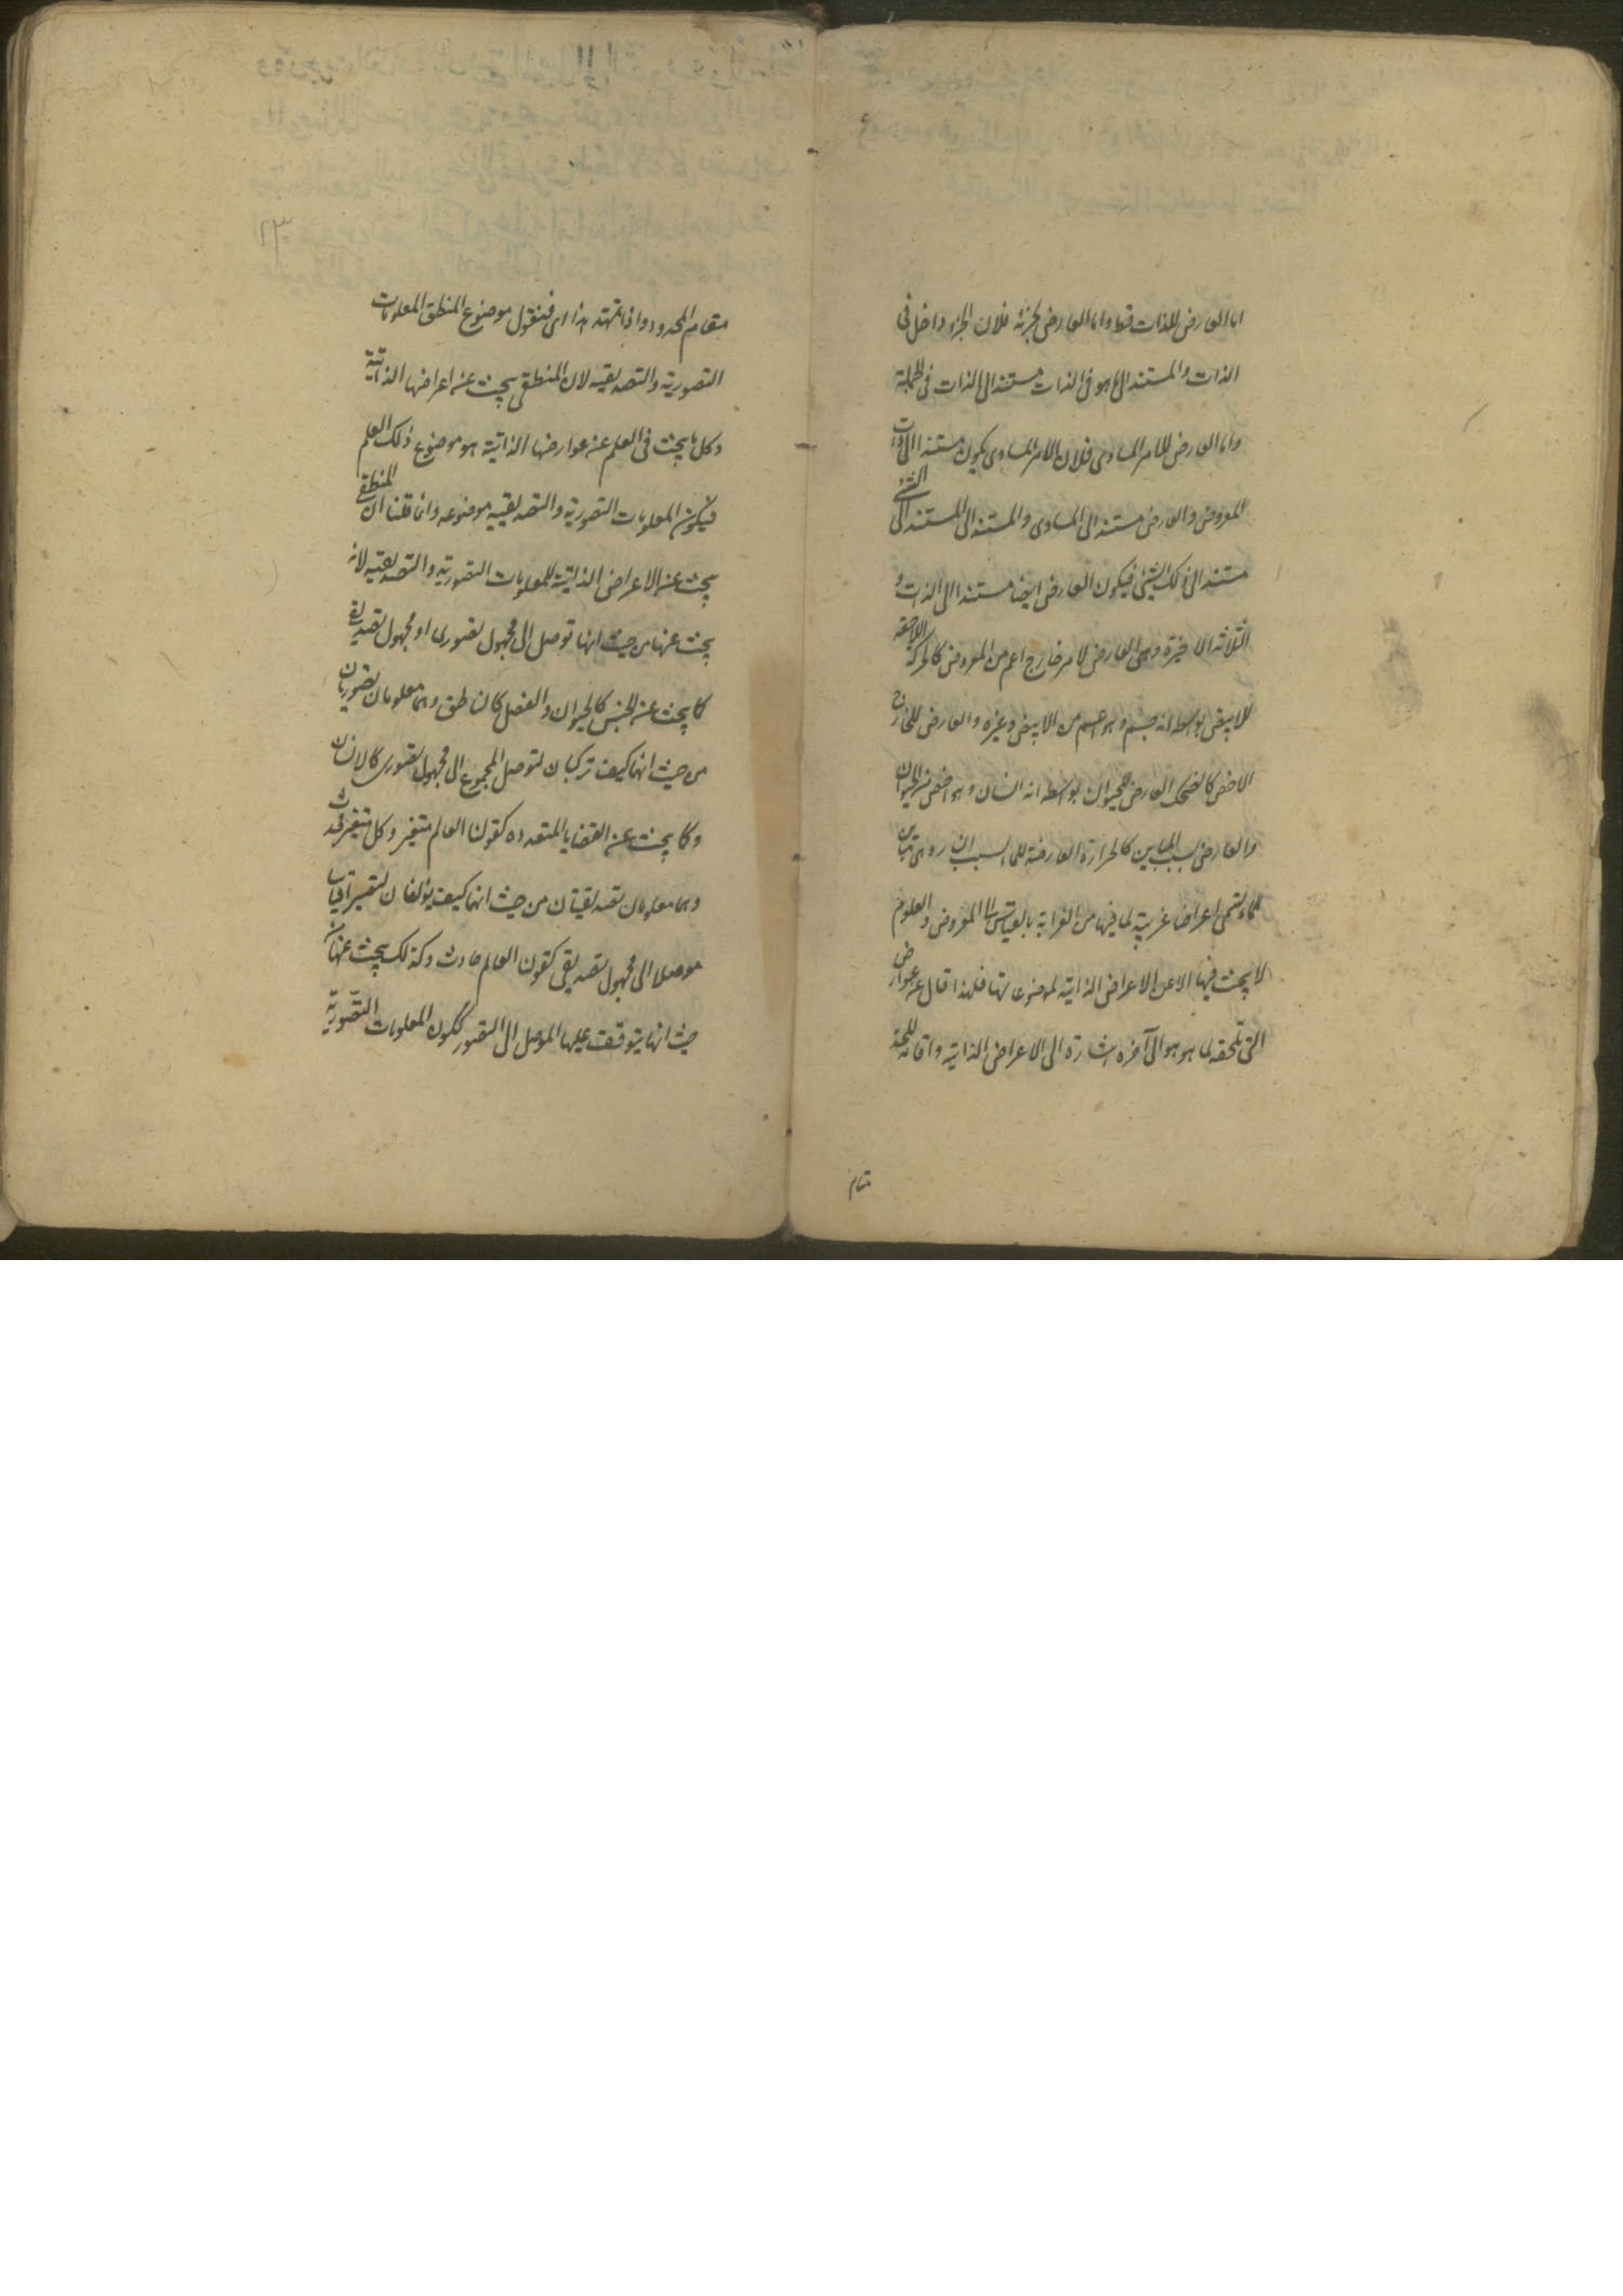 اما العارض للذات فظ واما العارض لجزئه فلان الجزء داخل فى
الذات والمستند الى ما هو فى الذات مستند الى الذات فى الجملة
واما العارض للامر المساوى فلان الامر المساوى يكون مستندا الى ذات
المعروض والعارض مستند الى المساوى والمستند الى المستند الى الشئ
مستند الى ذلك الشئ فيكون العارض ايضا مستندا الى الذات و
الثلاثة الاخيرة وهى العارض لامر خارج اعم من المعروض كالحركة اللاحقة
للابيض بواسطه انه جسم وهو اعم من الابيض وغيره والعارض للخارج
الاخص كالضحك العارض للحيوان بواسطه انه انسان وهو اخص من الحيوان
والعارض بسبب المباين كالحرارة العارضة للماء بسبب النار وهى تباين
للماء تسمى اعراضا غريبة لما فيها من الغرابه بالقياس الى المعروض والعلوم
لا يبحث فيها الا عن الاعراض الذاتية لموضوعاتها فلهذا قال عن عوارضه
التى تلحقه لما هو هو الى آخره اشارة الى الاعراض الذاتية واقامة للحد
مقام
٢٣
مقام المحدود واذا تمهد هذا فنقول موضوع المنطق المعلومات
التصورية والتصديقيه لان المنطقى يبحث عن اعراضها الذاتية
وكل ما يبحث فى العلم عن عوارضها الذاتية هو موضوع ذلك العلم
فيكون المعلومات التصورية والتصديقيه موضوعه وانما قلنا ان المنطقى
يبحث عن الاعراض الذاتية للمعلومات التصوريه والتصديقيه لانه
يبحث عنها من حيث انها توصل الى مجهول تصورى او مجهول تصديقى
كما يبحث عن الجنس كالحيوان والفصل كالناطق وهما معلومان تصوريان
من حيث انهما كيف تركبان لتوصل المجموع الى مجهول تصورى كالانسان
وكما يبحث عن القضايا المتعدده كقولنا العالم متغير وكل متغير محدث
وهما معلومان تصديقيان من حيث انهما كيف يؤلفان لتصير قياسا
موصلا الى مجهول تصديقى كقولنا العالم حادث وكذلك يبحث عنها من
حيث انها يتوقف عليها الموصل الى التصور ككون المعلومات التصورية